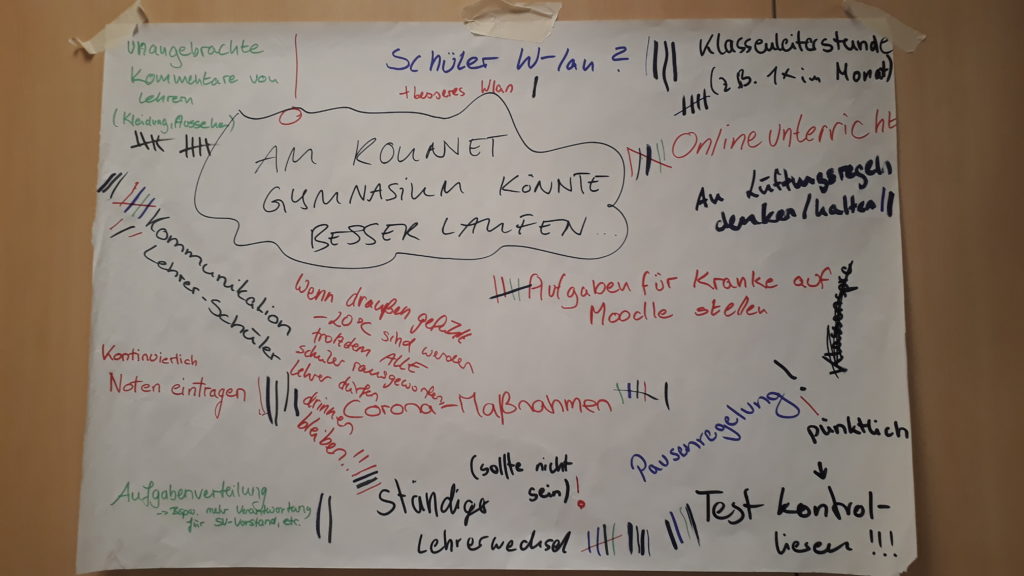 unangebrachte
Kommentare von
Lehrern
(Kleidung, Aussehen)
Schüler W-lan?
+ besseres Wlan
Klassenleiterstunde
(z.B. 1x im Monat)
AM KOLINNET
GYMNASIUM KÖNNTE
BESSER LAUFEN...
Onlineunterricht
An Lüftungsregeln
denken/halten
Kommunikation
Lehrer-Schüler
Aufgaben für Kranke auf
Moodle stellen
Wenn draußen gefühlt
-20°C sind werden
trotzdem ALLE
schüler rausgeworfen
Lehrer dürfen
drinnen
bleiben!!!
Kontinuierlich
Noten eintragen
Corona-Maßnahmen
Pausenregelung
pünktlich
↓
Test kontrol-
lieren!!!
Aufgabenverteilung
→ Bspw. mehr Verantwortung
für SV-Vorstand, etc.
(sollte nicht
sein)!
Ständiger
Lehrerwechsel